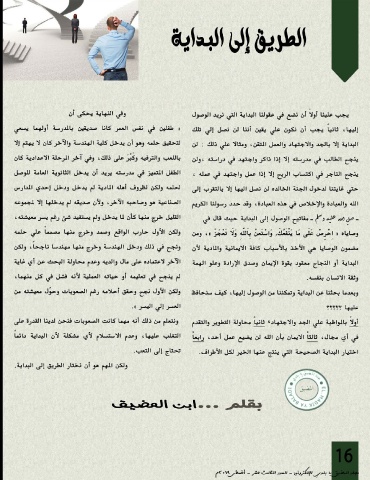 الطريق إلى البداية
يجب علينا أولاً أن نضع في عقولنا البداية التي نريد الوصول
إليها، ثانياً يجب أن نكون علي يقين أننا لن نصل إلي تلك
البداية إلا بالجد والاجتهاد والعمل المتقن، ومثالا علي ذلك : لن
ينجح الطالب في مدرسته إلا إذا ذاكر واجتهد في دراسته ،ولن
ينجح التاجر في اكتساب الربح إلا إذا عمل واجتهد في عمله ،
حتي غايتنا لدخول الجنة الخالده لن نصل اليها إلا بالتقرب إلى
الله والعبادة والإخلاص في هذه العبادة، وقد حدد رسولنا الكريم
مفاتيح الوصول إلى البداية حيث قال في
وصاياه « احْرِصْ عَلَى مَا يَنْفَعُكَ، وَاسْتَعِنْ بِاللَّهِ وَلَا تَعْجَزْ »، ومن
مضمون الوصايا هي الأخذ بالأسباب كافة الايمانية والمادية لأن
البداية أو النجاح معقود بقوة الإيمان وصدق الإرادة وعلو الهمة
وثقة الانسان بنفسه.
وبعدما بحثنا عن البداية وتمكننا من الوصول إليها، كيف سنحافظ
عليها ؟؟؟؟؟
أولاً بالمواظبة علي الجد والاجتهاد، ثانياً محاولة التطوير والتقدم
في أي مجال، ثالثاً الايمان بأن الله لن يضيع عمل أحد، رابعاً
اختيار البداية الصحيحة التي ينتج عنها الخير لكل الأطراف.
وفي النهاية يحكى أن
« طفلين في نفس العمر كانا صديقين بالمدرسة أولهما يسعي
لتحقيق حلمه وهو أن يدخل كلية الهندسة والآخر كان لا يهتم إلا
باللعب والترفيه وكَبُرَ على ذلك، وفي آخر المرحلة الاعدادية كان
الطفل المتميز في مدرسته يريد أن يدخل الثانوية العامة للوصل
لحلمه ولكن لظروف أهله المادية لم يدخل ودخل إحدي المدارس
الصناعية هو وصاحبه الآخر، ولأن صديقه لم يدخلها إلا لمجموعه
القليل خرج منها كأن ما يدخل ولم يستفيد شئ رغم يسر معيشته،
ولكن الأول حارب الواقع وصمد وخرج منها مصمماً علي حلمه
ونجح في ذلك ودخل الهندسة وخرج منها مهندسا ناجحاً، ولكن
الآخر لاعتماده على مال والديه وعدم محاولة البحث عن أي غاية
لم ينجح في تعليمه أو حياته العملية لأنه فشل في كل منهما،
ولكن الأول نجح وحقق أحلامه رغم الصعوبات وحوّل معيشته من
العسر إلي اليسر ».
ونتعلم من ذلك أنه مهما كانت الصعوبات فنحن لدينا القدرة على
التغلب عليها، وعدم الاستسلام لأي مشكلة لأن البداية دائماً
تحتاج إلى التعب.
ولكن المهم هو أن نختار الطريق إلى البداية.
بقلم ...ابن العضيف
16